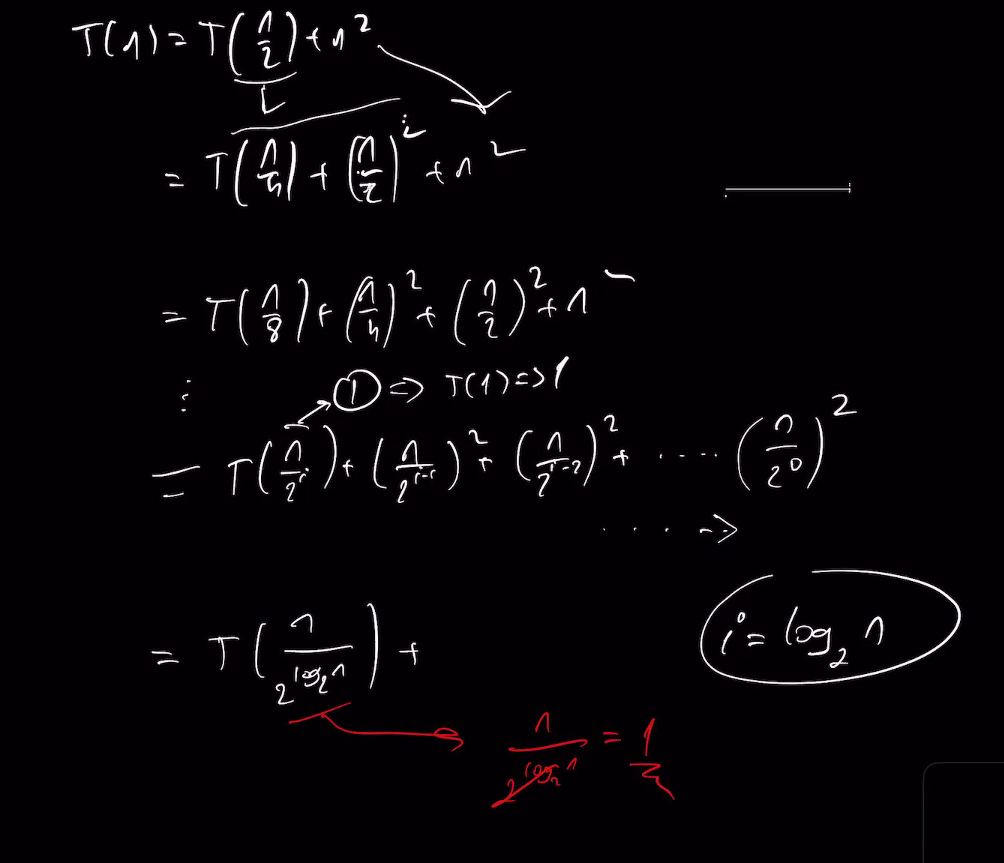 T(n) = T(n/2) + n²
= T(n/4) + (n/2)² + n²
= T(n/8) + (n/4)² + (n/2)² + n
⋮
① => T(1) => 1
= T(n/2^i) + (n/2^(i-1))² + (n/2^(i-2))² + ..... (n/2^0)²
.... ->
= T(n/2^(log₂n)) +
i = log₂ n
n/2^(log₂n) = 1